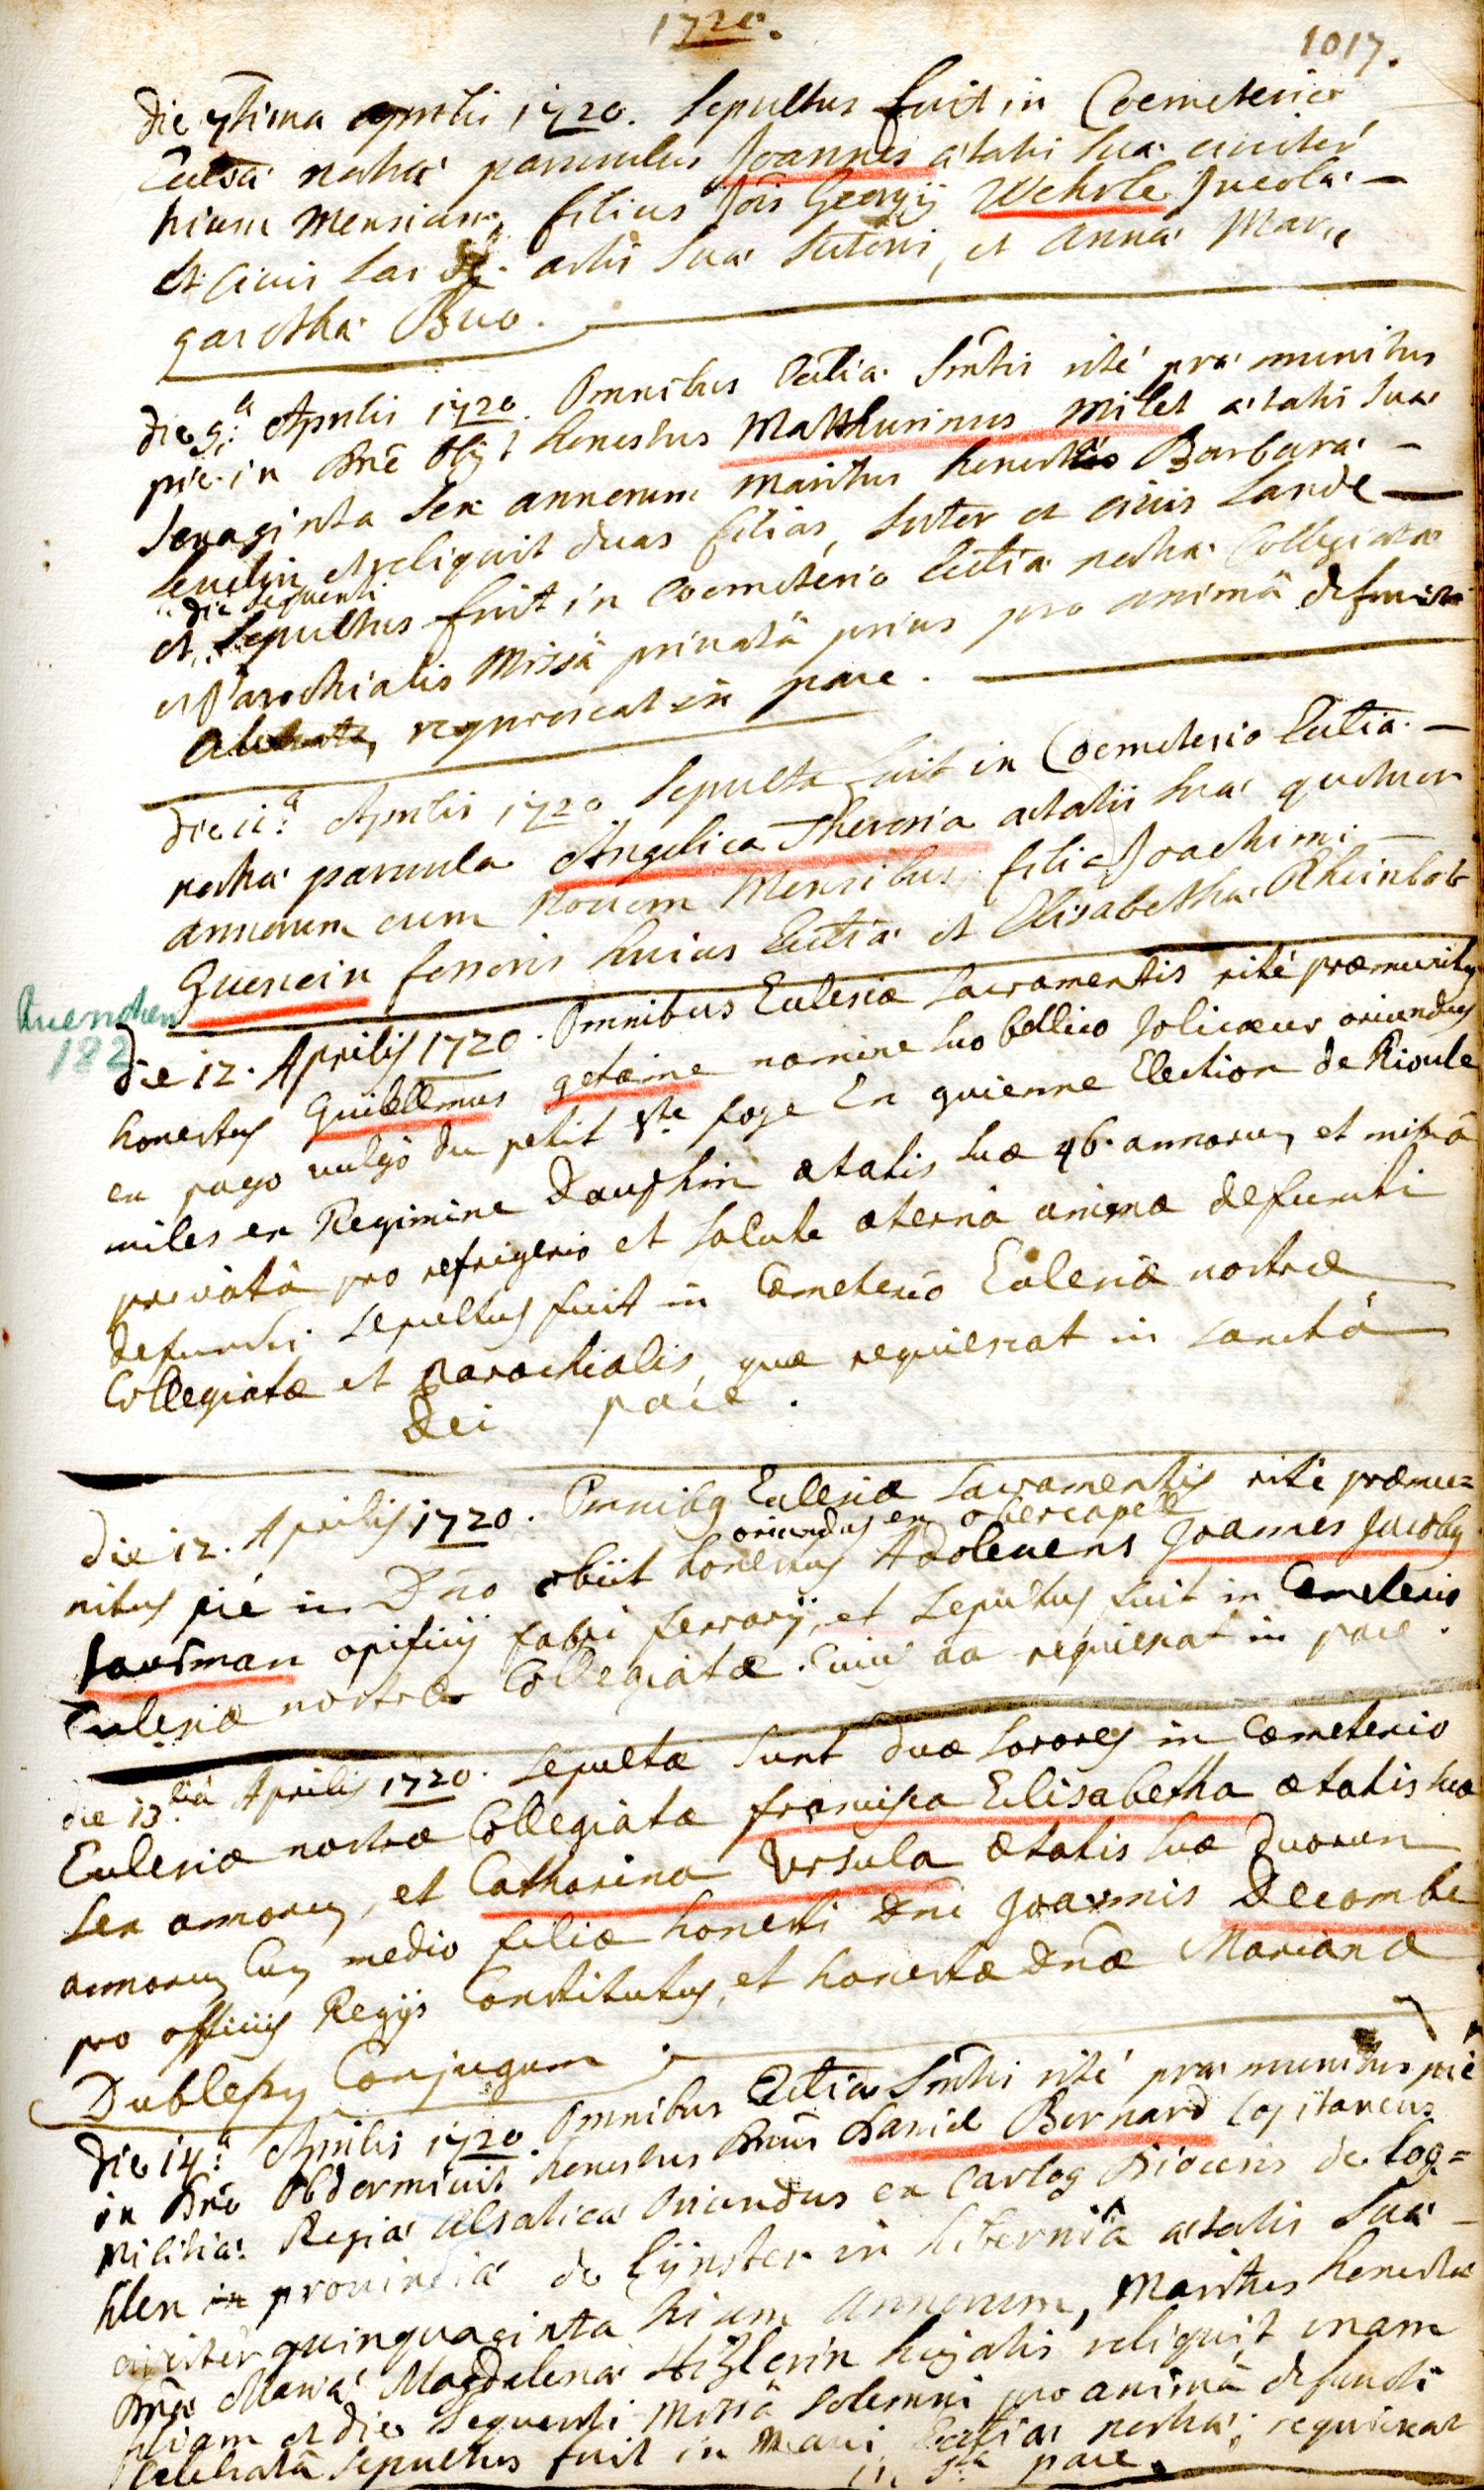 1720.
1017.
Die 7tima aprilis 1720. Sepultus fuit in Coemeterio
Eccl̄sa nostra parvulus Joannes ætatis sua circiter
trium Mensium, filius Jois Georgij Wehrle Incola
et Civis artis sua Sutoris, et Anna Mar,,
garetha Buo.
Die 9.a Aprilis 1720. Omnibus Eccl̄ia Sm̄tis rité præmunitus
pie in Dn̄o obijt honestus Matthurinus Milet ætatis sua
sexaginta sex annorum maritus honesta Barbara
et reliquit duas filias, Sutor et civis Landa
die sequenti
et Sepultus fuit in coemeterio Eccl̄ia nostra Collegiata
et Parochialis Missâ privatâ prius pro animâ defuncti
requiescat in pace.
Die 11.a Aprilis 1720 Sepulta fuit in Coemeterio Eccl̄ia
nostra parvula Angelica Theresia ætatis sua quatuor
annorum cum Novem Mensibus, filia Joachimi
Quenein fossoris huius Eccl̄ia et Elisabetha Rheinbolt
Quenchen
182
Die 12. Aprilis 1720. Omnibus Ecclesiæ Sacramentis rité præmunitus
honestus Guillelmus getaine nomine suo bellico Jolicœur oriundus
ex pago vulgò du petit Ste foye En guienne Election de Rioule
miles ex Regimine Dauphin ætatis suæ 46. annorum, et missâ
privatâ pro refrigerio et salute æterna animæ defuncti
defuncti sepultus fuit in Cœmeterio Ecclesiæ nostræ
Collegiatæ et parochialis, quæ requiescat in sanctâ
Dei pace.
Die 12. Aprilis 1720. Omnibq Ecclesiæ Sacramentis rité præmu=
oriundus ex obercapell
nitus pié in Dn̄o obiit honestus Adolescens Joannes Jacobus
opificij fabri ferrarij, et sepultus fuit in Cœmeterio
Ecclesiæ nostræ Collegiatæ. Cuius aa requiescat in pace.
die 13.tiâ Aprilis 1720. sepultæ sunt duæ sorores in Cœmeterio
Ecclesiæ nostræ Collegiatæ francisca Elisabetha ætatis suæ
sex annorum, et Catharina Ursula ætatis suæ duorum
annorum cum medio filiæ honesti Dn̄i Joannis Decombe
pro officijs Regijs Constitutus, et honestæ Dn̄æ Marianæ
Conjugum.
Die 14.a Aprilis 1720. Omnibus Eccl̄ia Sm̄tis rité præmunitus pié
in Dn̄o Obdormivit honestus Dn̄us Daniel Bernard Capitaneus
Militia Regia Alsatica Oriundus ex Carlog Diocesis de Log=
hlen in provincia de Lijnster in hibernia ætatis sua
circiter quinquaginta trium annorum, Maritus honesta
Dn̄a Maria Magdalena Hizlerin hujatis reliquit unam
filiam et die sequenti Missâ solemni pro animâ defuncti
celebratâ Sepultus fuit in Navi Eccl̄ia nostra, requiescat
in sta pace.